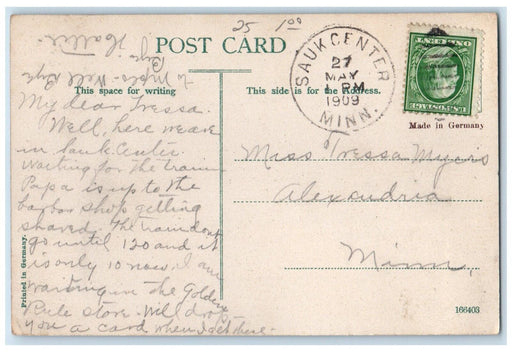 25 1.00
Hattie.
Bye
to Mpls - Well Bye
POST CARD
This space for writing
This side is for the Address.
SAUK CENTER
27
MAY
1 PM
1909
MINN.
Made in Germany
My dear Tressa.
Well, here we are
in Sauk Center
Waiting for the train
Papa is up to the
barber shop getting
shaved. The train dont
go until 1 20 and it
is only 10 now. I am
waiting in the Golden
Rule store. Will drop
you a card when I get there.
Miss Tressa Myers
Alexandria
Minn,
Printed in Germany.
166403